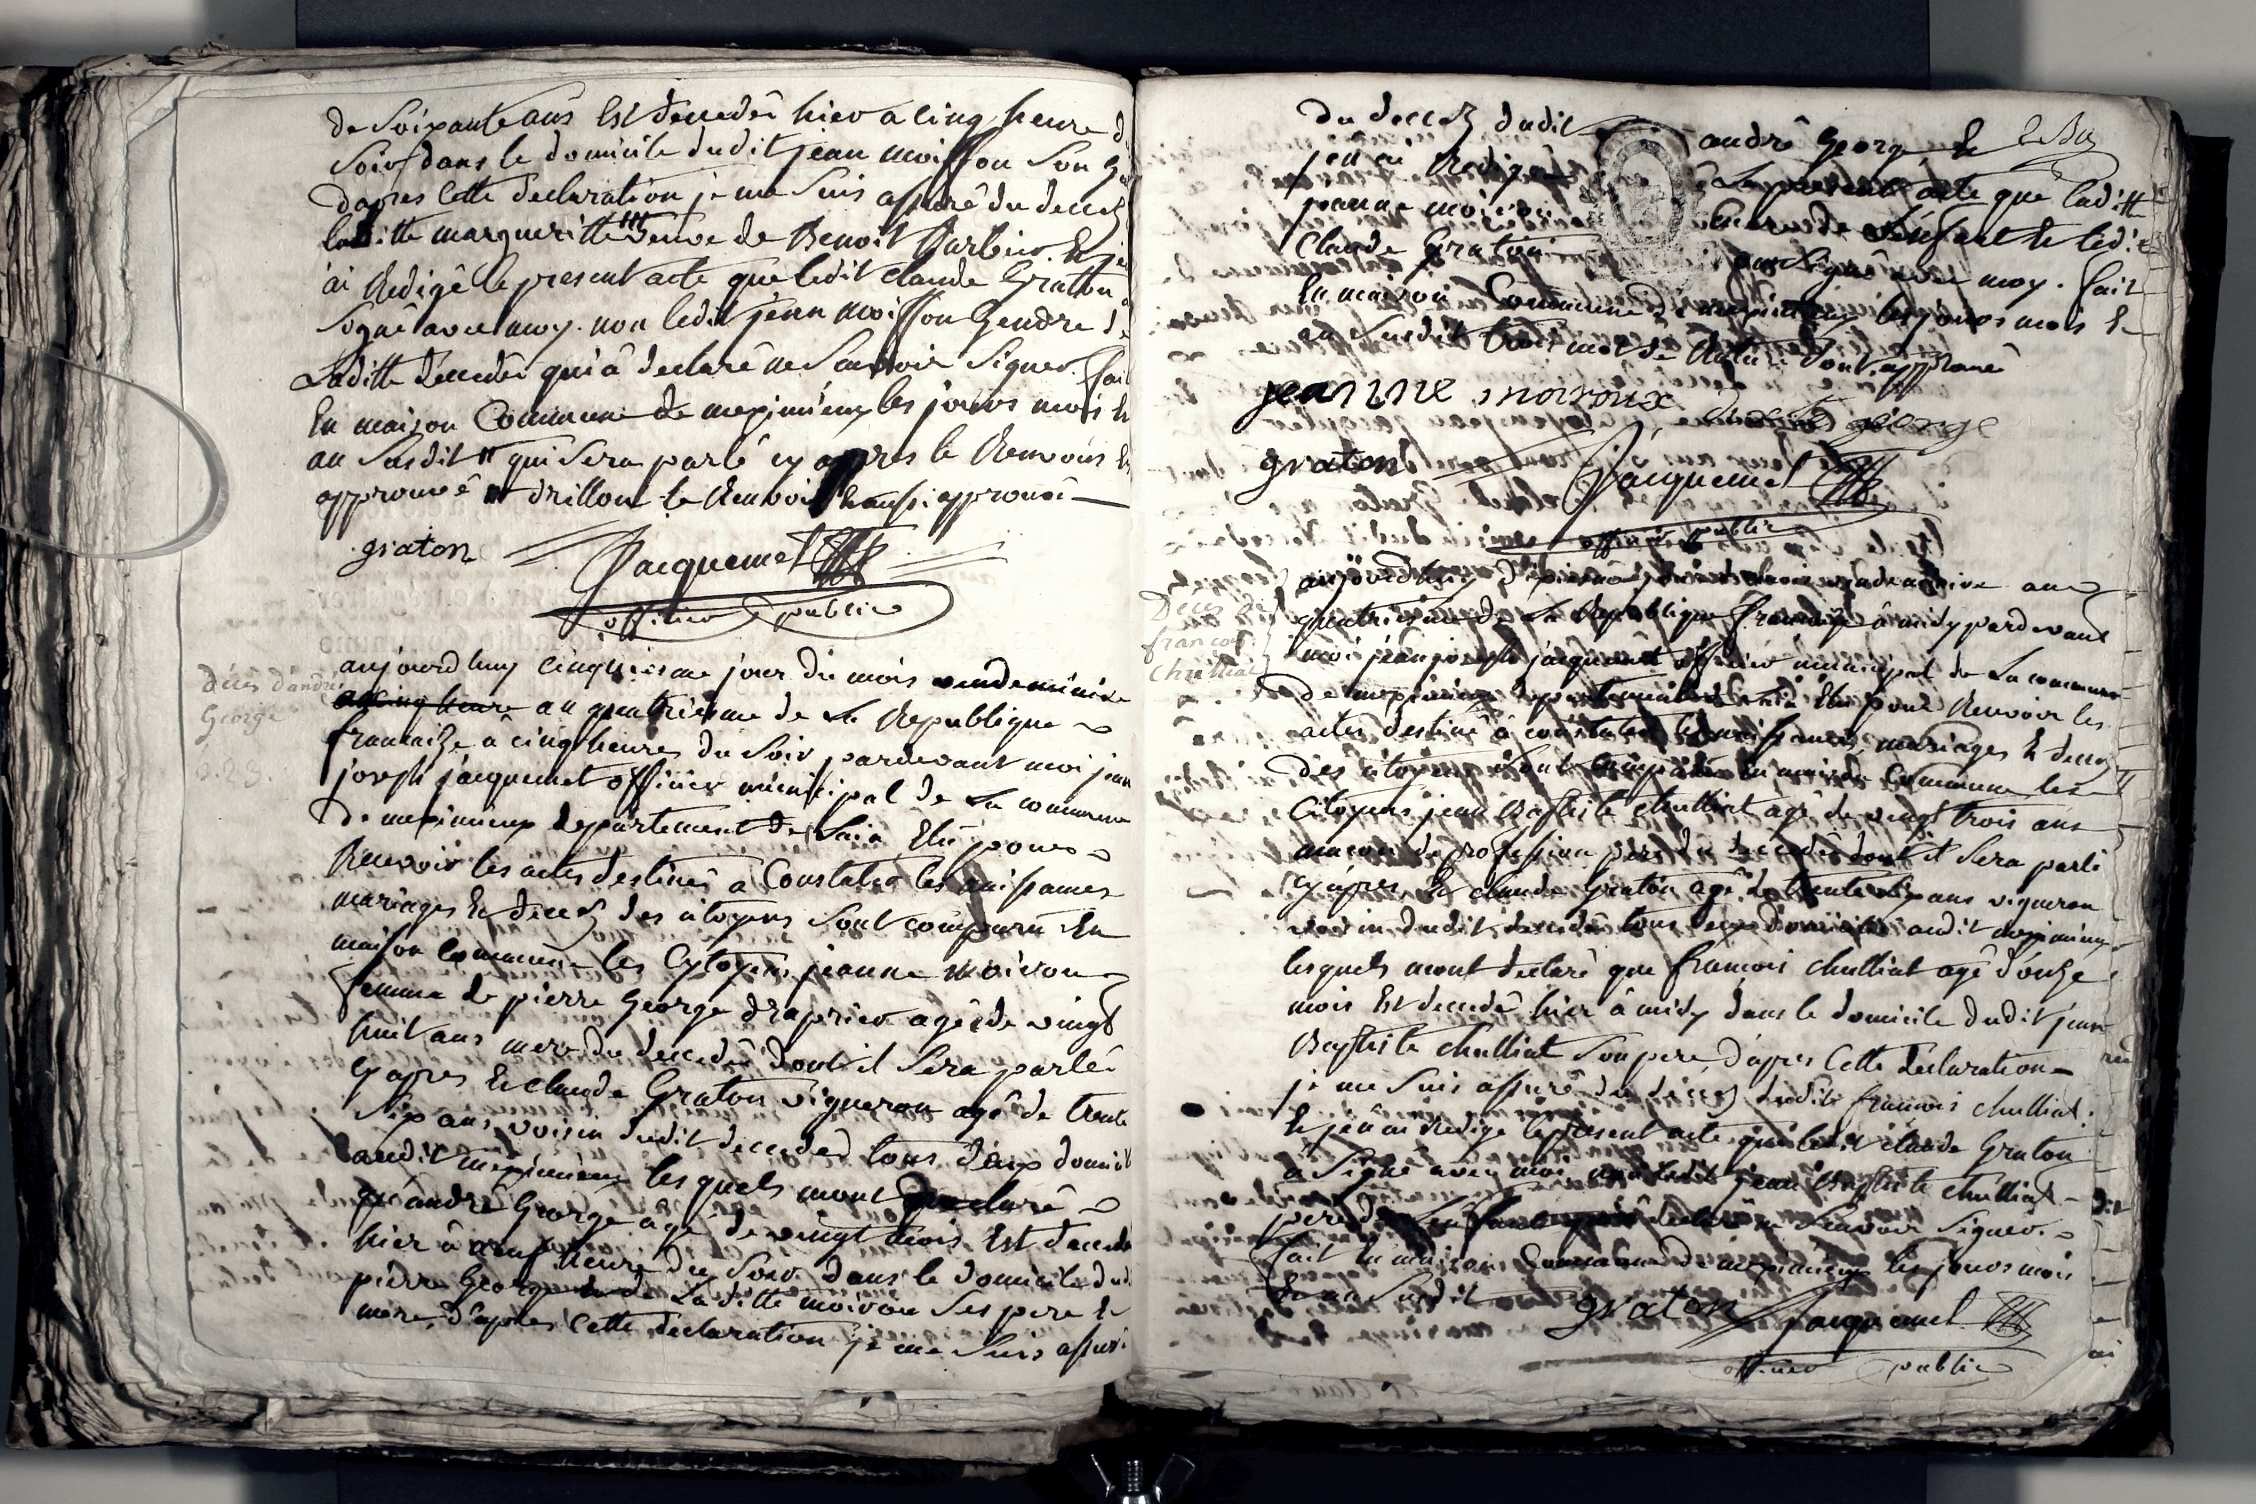 de Soixante ans Est decedée hier a cinq heure d
Soir dans le domicile dudit jean moisson Son G
dapres Cette declaration je me Suis assuré du decez
laditte margueritte veuve de Benoit Barbier Et j'en
ai Redigé le present acte que ledit claude Graton a
Signé avec moy. non ledit jean moisson Gendre de
Laditte decedée qui a declaré ne Scavoir Signer. fait
En maison Commune de meximieux les jours mois Et
an Susdit qui Sera parlé cy apres le Renvois
approuvé drillon le Renvoi aussi approuvé
graton Jacquemet
officier public
Décès d'andré
George
aujourdhuy cinquiesme jour du mois vendemiaire
a cinq heure an quatriesme de La Republique
francaize à cinq heures du Soir pardevant moi jean
joseph jacquemet officier municipal de La commune
de meximieux departement de Lain Elu pour
Recevoir les actes destinés a Constater les naissances
mariages Et decez des citoyens Sont comparu En
maison commune les Cytoyens jeanne moiroux
femme de pierre George agée de vingt
huit ans mere du decedé dont il Sera parlé
cy apres Et claude Graton vigneron agé de trente
Six ans voisin dudit decedé tous deux domicil
audit meximieux les quels mont declaré
qu'andré George agé de vingt mois Est decedé
hier à neuf heure du Soir dans le domicile dud
pierre George de La ditte moiroux Ses pere Et
mere, d'apres Cette declaration je me Suis assuré
du decez dudit andré George Et
j'en ai Redigé Le present acte que laditte
jeanne moiroux mere de L'enfant Et ledit
Claude Graton ont Signé avec moy. fait
En maison Commune de meximieux les jours mois Et
an Susdit trois mot de Rature dont approuvé
jeanne moiroux george
graton Jacquemet
officier public
Décès de
françois
Chulliat
aujourdhuy Sixieme jour du mois vendemiaire an
quatriesme de La Republique francaize à midy pardevant
moi jean joseph jacquemet officier municipal de La commune
de meximieux departement de Lain Elu pour Recevoir les
actes destiné à constater les naissances, mariages Et decez
des citoyens Sont comparu En maison Commune les
Citoyens jean Baptiste chulliat agé de vingt trois ans
macon de profession pere du decedé dont il Sera parlé
cy apres Et claude Graton agé de trente Six ans vigneron
voisin dudit decedé tous deux domicilié audit meximieux
lesquels mont declaré que francois chulliat agé d'onze
mois Est decedé hier à midy dans le domicile dudit jean
Baptiste chulliat Son pere, d'apres Cette declaration
je me Suis assuré du decez dudit francois chulliat.
Et j'en ai Redigé le present acte que ledit claude Graton
a Signé avec moi non ledit jean Baptiste chulliat
pere de L'enfant qui a declaré ne Scavoir Signer.
fait En maison Commune de meximieux les jours mois
Et an Susdit
graton Jacquemet
officier public